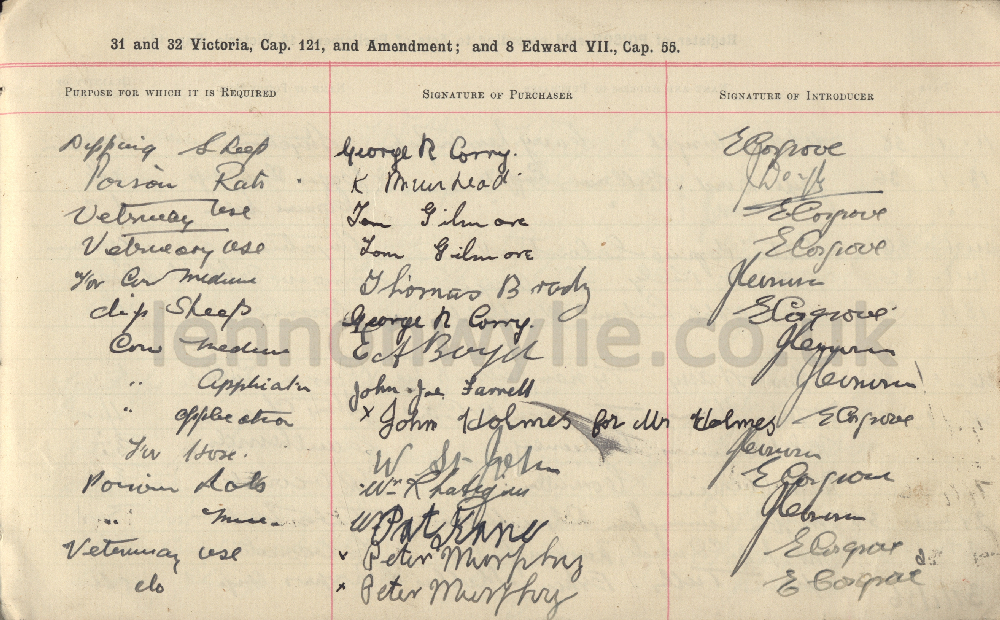 31 and 32 Victoria, Cap. 121, and Amendment; and 8 Edward VII., Cap. 55.
PURPOSE FOR WHICH IT IS REQUIRED SIGNATURE OF PURCHASER SIGNATURE OF INTRODUCER
Dipping Sheep George R Corry. E Cosgrove
Poison Rats. K Muirhead
Vetruiary use Tom Gilmore E Cosgrove
Vetrueary use Tom Gilmore E Cosgrove
For Cow Medicine Thomas Brady
dip Sheep George R Corry. E Cosgrove
Cow Medicine E A Boyd
" Application John Joe Farrell
" application x John Holmes for Mr Holmes E Cosgrove
For Hose. W St John
Poison Rats Wm Rhategan E Cosgrove
" Pat Kane
Veterinay use x Peter Morphy E Cosgrove
do x Peter Murphy E Cosgrove
lennonwylie.co.uk